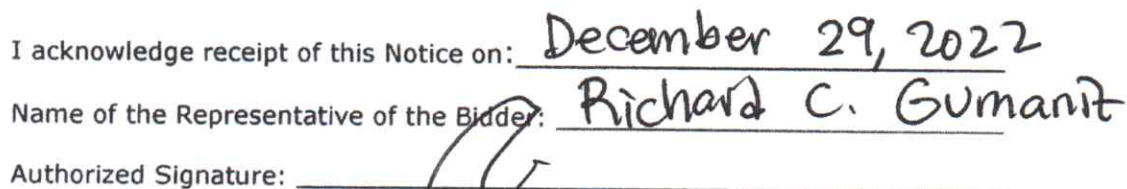 I acknowledge receipt of this Notice on: December 29, 2022
Name of the Representative of the Bidder: Richard C. Gumanit
Authorized Signature: